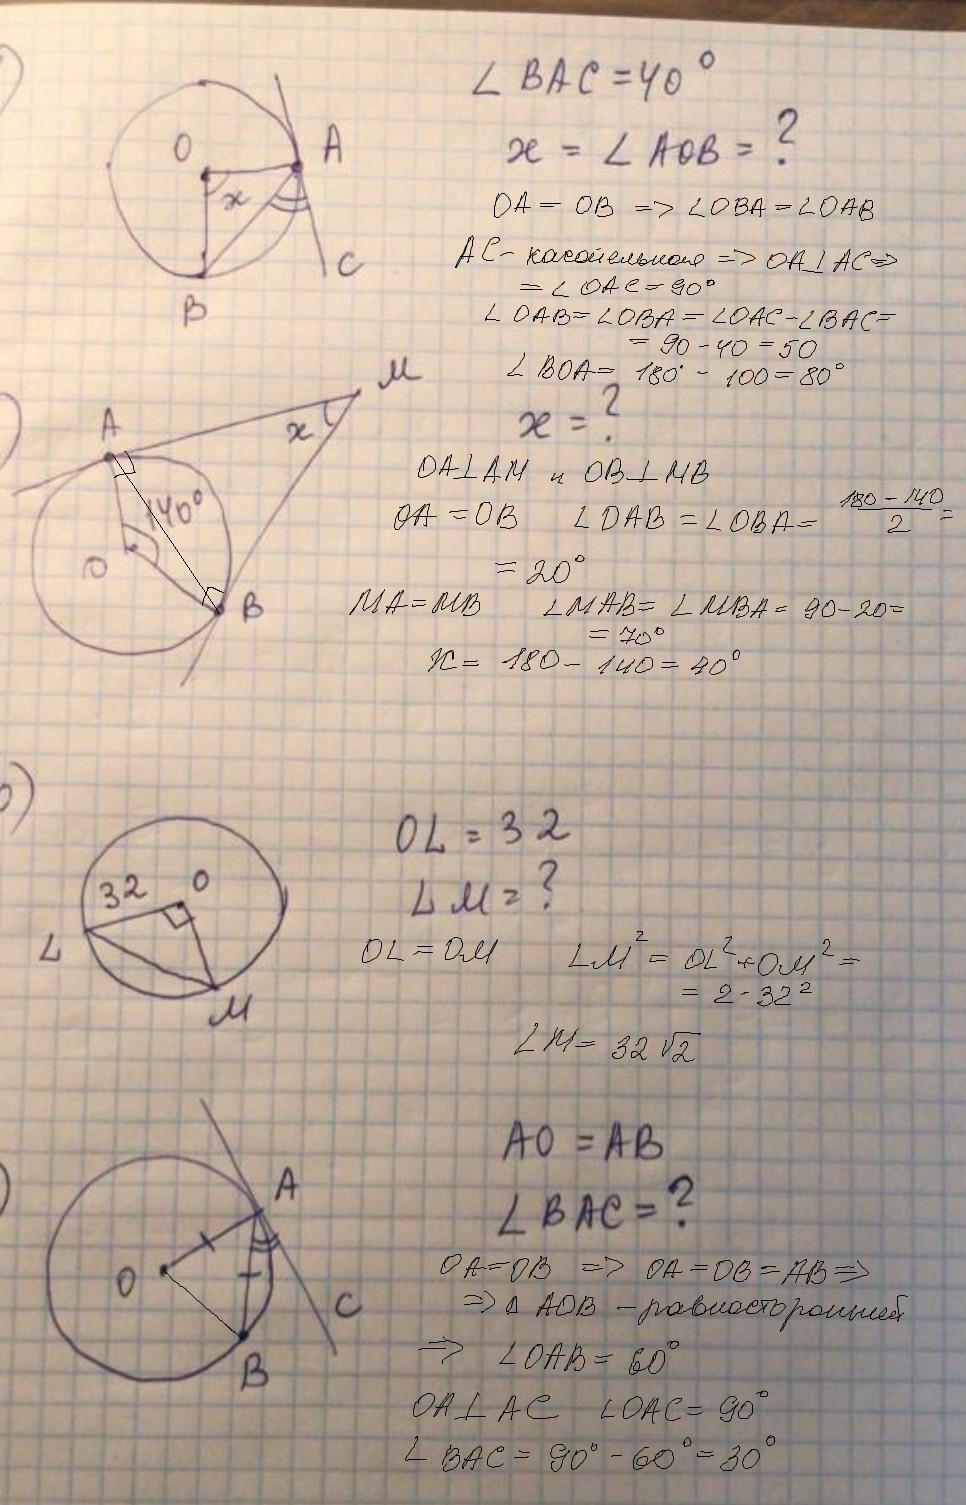 ∠BAC = 40°
x = ∠AOB = ?
O
A
x
B
C
OA = OB => ∠OBA = ∠OAB
AC - касательная => OA⊥AC =>
= ∠OAC = 90°
∠OAB = ∠OBA = ∠OAC - ∠BAC =
= 90 - 40 = 50
∠BOA = 180° - 100 = 80°
M
A
x
140°
O
B
x = ?
OA⊥AM и OB⊥MB
OA = OB ∠OAB = ∠OBA = (180 - 140)/2 =
= 20°
MA = MB ∠MAB = ∠MBA = 90 - 20 =
= 70°
x = 180 - 140 = 40°
32
O
L
M
OL = 32
LM = ?
OL = OM LM² = OL² + OM² =
= 2 · 32²
LM = 32√2
A
O
B
C
AO = AB
∠BAC = ?
OA = OB => OA = OB = AB =>
=> Δ AOB - равносторонний
=> ∠OAB = 60°
OA⊥AC ∠OAC = 90°
∠BAC = 90° - 60° = 30°